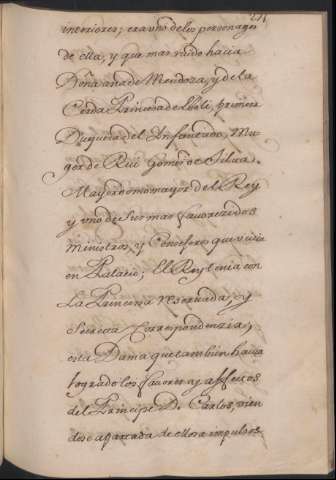 271
interiores; era uno de los personages
de ella, y que mas ruido hacia
Doña Ana de Mendoza, y de la
Cerda Princesa de Eboli, primera
Duquesa del Infantado, Mu-
ger de Rui Gomez de Silva,
Mayordomo mayor del Rey
y uno de sus mas favorecidos
Ministros, y Consejero que vivia
en Palacio; El Rey tenia con
La Princesa reservada, y
Secreta Correspondenzia;
esta Dama que tambien havia
logrado los favores, y affectos
del Principe Dn Carlos, vien
dose apartada de ellos a impulsos